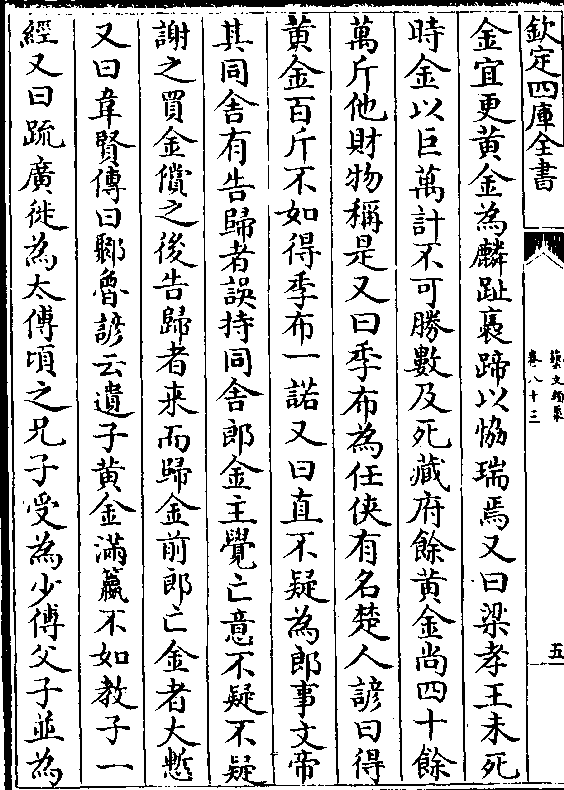 欽定四庫全書
藝文類聚
卷八十三
五
金宜更黃金為麟趾裹蹄以協瑞焉又曰梁孝王未死
時金以巨萬計不可勝數及死藏府餘黃金尚四十餘
萬斤他財物稱是又曰季布為任俠有名楚人諺曰得
黃金百斤不如得季布一諾又曰直不疑為郎事文帝
其同舍有告歸者誤持同舍郎金主覺亡意不疑不疑
謝之買金償之後告歸者来而歸金前郎亡金者大慙
又曰韋賢傳曰鄒魯諺云遺子黃金滿籯不如教子一
經又曰疏廣徙為太傅頃之兄子受為少傅父子並為